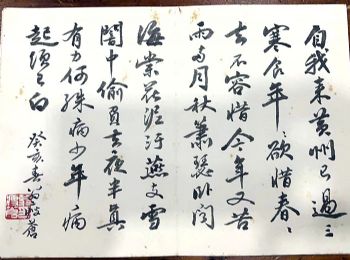 自我來黃州已過三
寒食年〻欲惜春〻
去不容惜今年又苦
雨兩月秋蕭瑟臥聞
海棠花泥汙燕支雪
闇中偷負去夜半真
有力何殊病少年病
起須已白
癸亥春